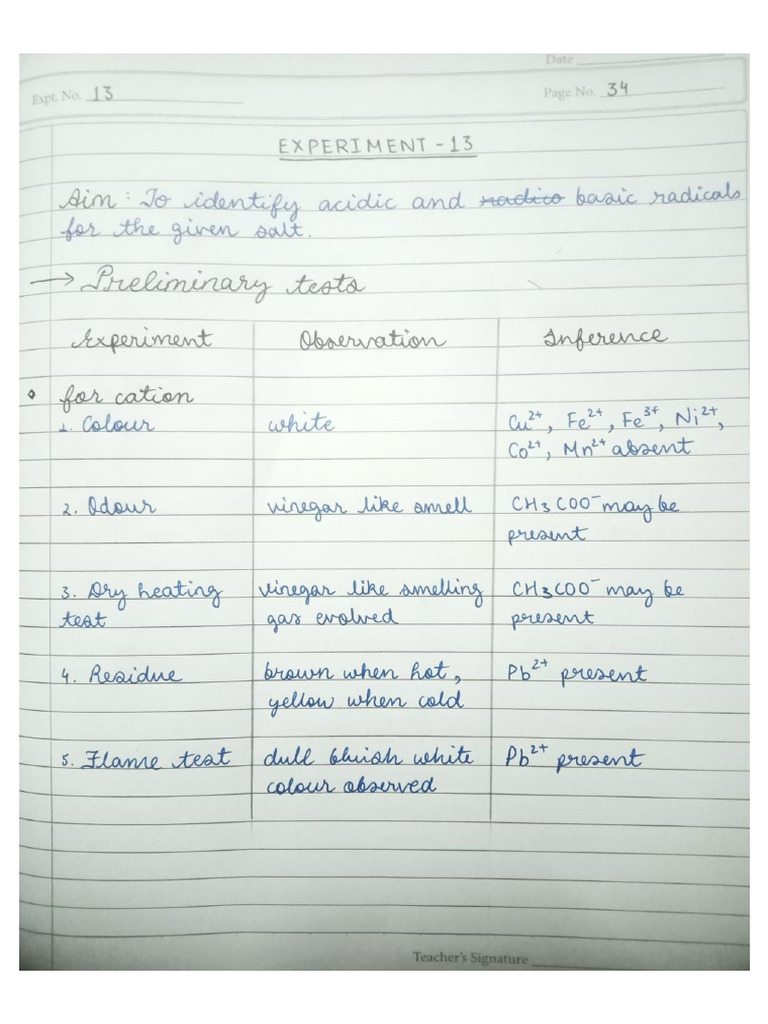 Date
Expt. No. 13
Page No. 34
EXPERIMENT - 13
Aim : To identify acidic and radico basic radicals
for the given salt.
→ Preliminary tests
Experiment Observation Inference
for cation
1. Colour white Cu²⁺, Fe²⁺, Fe³⁺, Ni²⁺,
Co²⁺, Mn²⁺ absent
2. Odour vinegar like smell CH₃COO⁻ may be
present
3. Dry heating vinegar like smelling CH₃COO⁻ may be
test gas evolved present
4. Residue brown when hot, Pb²⁺ present
yellow when cold
5. Flame test dull bluish white Pb²⁺ present
colour observed
Teacher's Signature